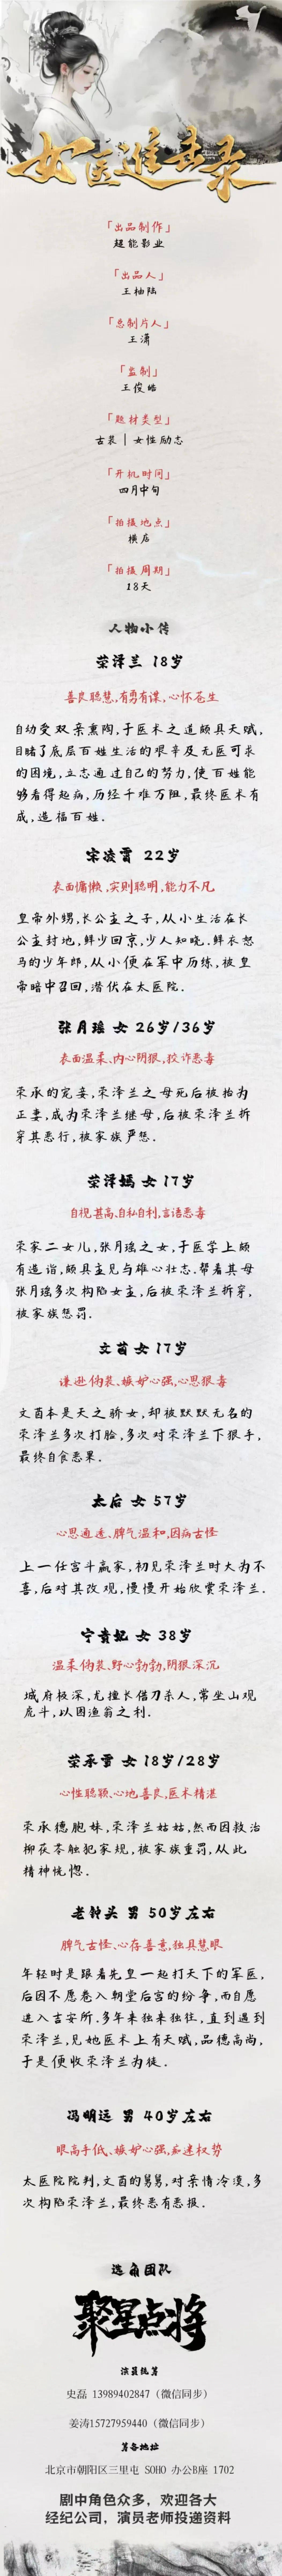 女医进击录
「出品制作」
超能影业
「出品人」
王柚陆
「总制片人」
王潇
「监制」
王俊皓
「题材类型」
古装 | 女性励志
「开机时间」
四月中旬
「拍摄地点」
横店
「拍摄周期」
18天
人物小传
荣泽兰 18岁
善良聪慧,有勇有谋,心怀苍生
自幼受双亲熏陶,于医术之道颇具天赋,
目睹了底层百姓生活的艰辛及无医可求
的困境,立志通过自己的努力,使百姓能
够看得起病,历经千难万阻,最终医术有
成,造福百姓.
宋凌霄 22岁
表面慵懒,实则聪明,能力不凡
皇帝外甥,长公主之子,从小生活在长
公主封地,鲜少回京,少人知晓.鲜衣怒
马的少年郎,从小便在军中历练,被皇
帝暗中召回,潜伏在太医院.
张月瑶 女 26岁/36岁
表面温柔、内心阴狠,狡诈恶毒
荣承的宠妾,荣泽兰之母死后被抬为
正妻,成为荣泽兰继母,后被荣泽兰拆
穿其恶行,被家族严惩.
荣泽嫣 女 17岁
自视甚高、自私自利,言语恶毒
荣家二女儿,张月瑶之女,于医学上颇
有造诣,颇具主见与雄心壮志.帮着其母
张月瑶多次构陷女主,后被荣泽兰拆穿,
被家族惩罚.
文茵 女 17岁
谦逊伪装、嫉妒心强,心思狠毒
文茵本是天之骄女,却被默默无名的
荣泽兰多次打脸,多次对荣泽兰下狠手,
最终自食恶果.
太后 女 57岁
心思通透、脾气温和,因病古怪
上一任宫斗赢家,初见荣泽兰时大为不
喜,后对其改观,慢慢开始欣赏荣泽兰.
宁贵妃 女 38岁
温柔伪装、野心勃勃,阴狠深沉
城府极深,尤擅长借刀杀人,常坐山观
虎斗,以图渔翁之利.
荣承雪 女 18岁/28岁
心性聪颖、心地善良,医术精湛
荣承德胞妹,荣泽兰姑姑,然而因救治
柳茯苓触犯家规,被家族重罚,从此
精神恍惚.
老钟头 男 50岁左右
脾气古怪、心存善意,独具慧眼
年轻时是跟着先皇一起打天下的军医,
后因不愿卷入朝堂后宫的纷争,而自愿
进入吉安所.多年来独来独往,直到遇到
荣泽兰,见她医术上有天赋,品德高尚,
于是便收荣泽兰为徒.
冯明远 男 40岁左右
眼高手低、嫉妒心强,痴迷权势
太医院院判,文茵的舅舅,对亲情冷漠,多
次构陷荣泽兰,最终恶有恶报.
选角团队
聚星点将
演员统筹
史磊 13989402847（微信同步）
姜涛15727959440（微信同步）
筹备地址
北京市朝阳区三里屯 SOHO 办公B座 1702
剧中角色众多，欢迎各大
经纪公司，演员老师投递资料